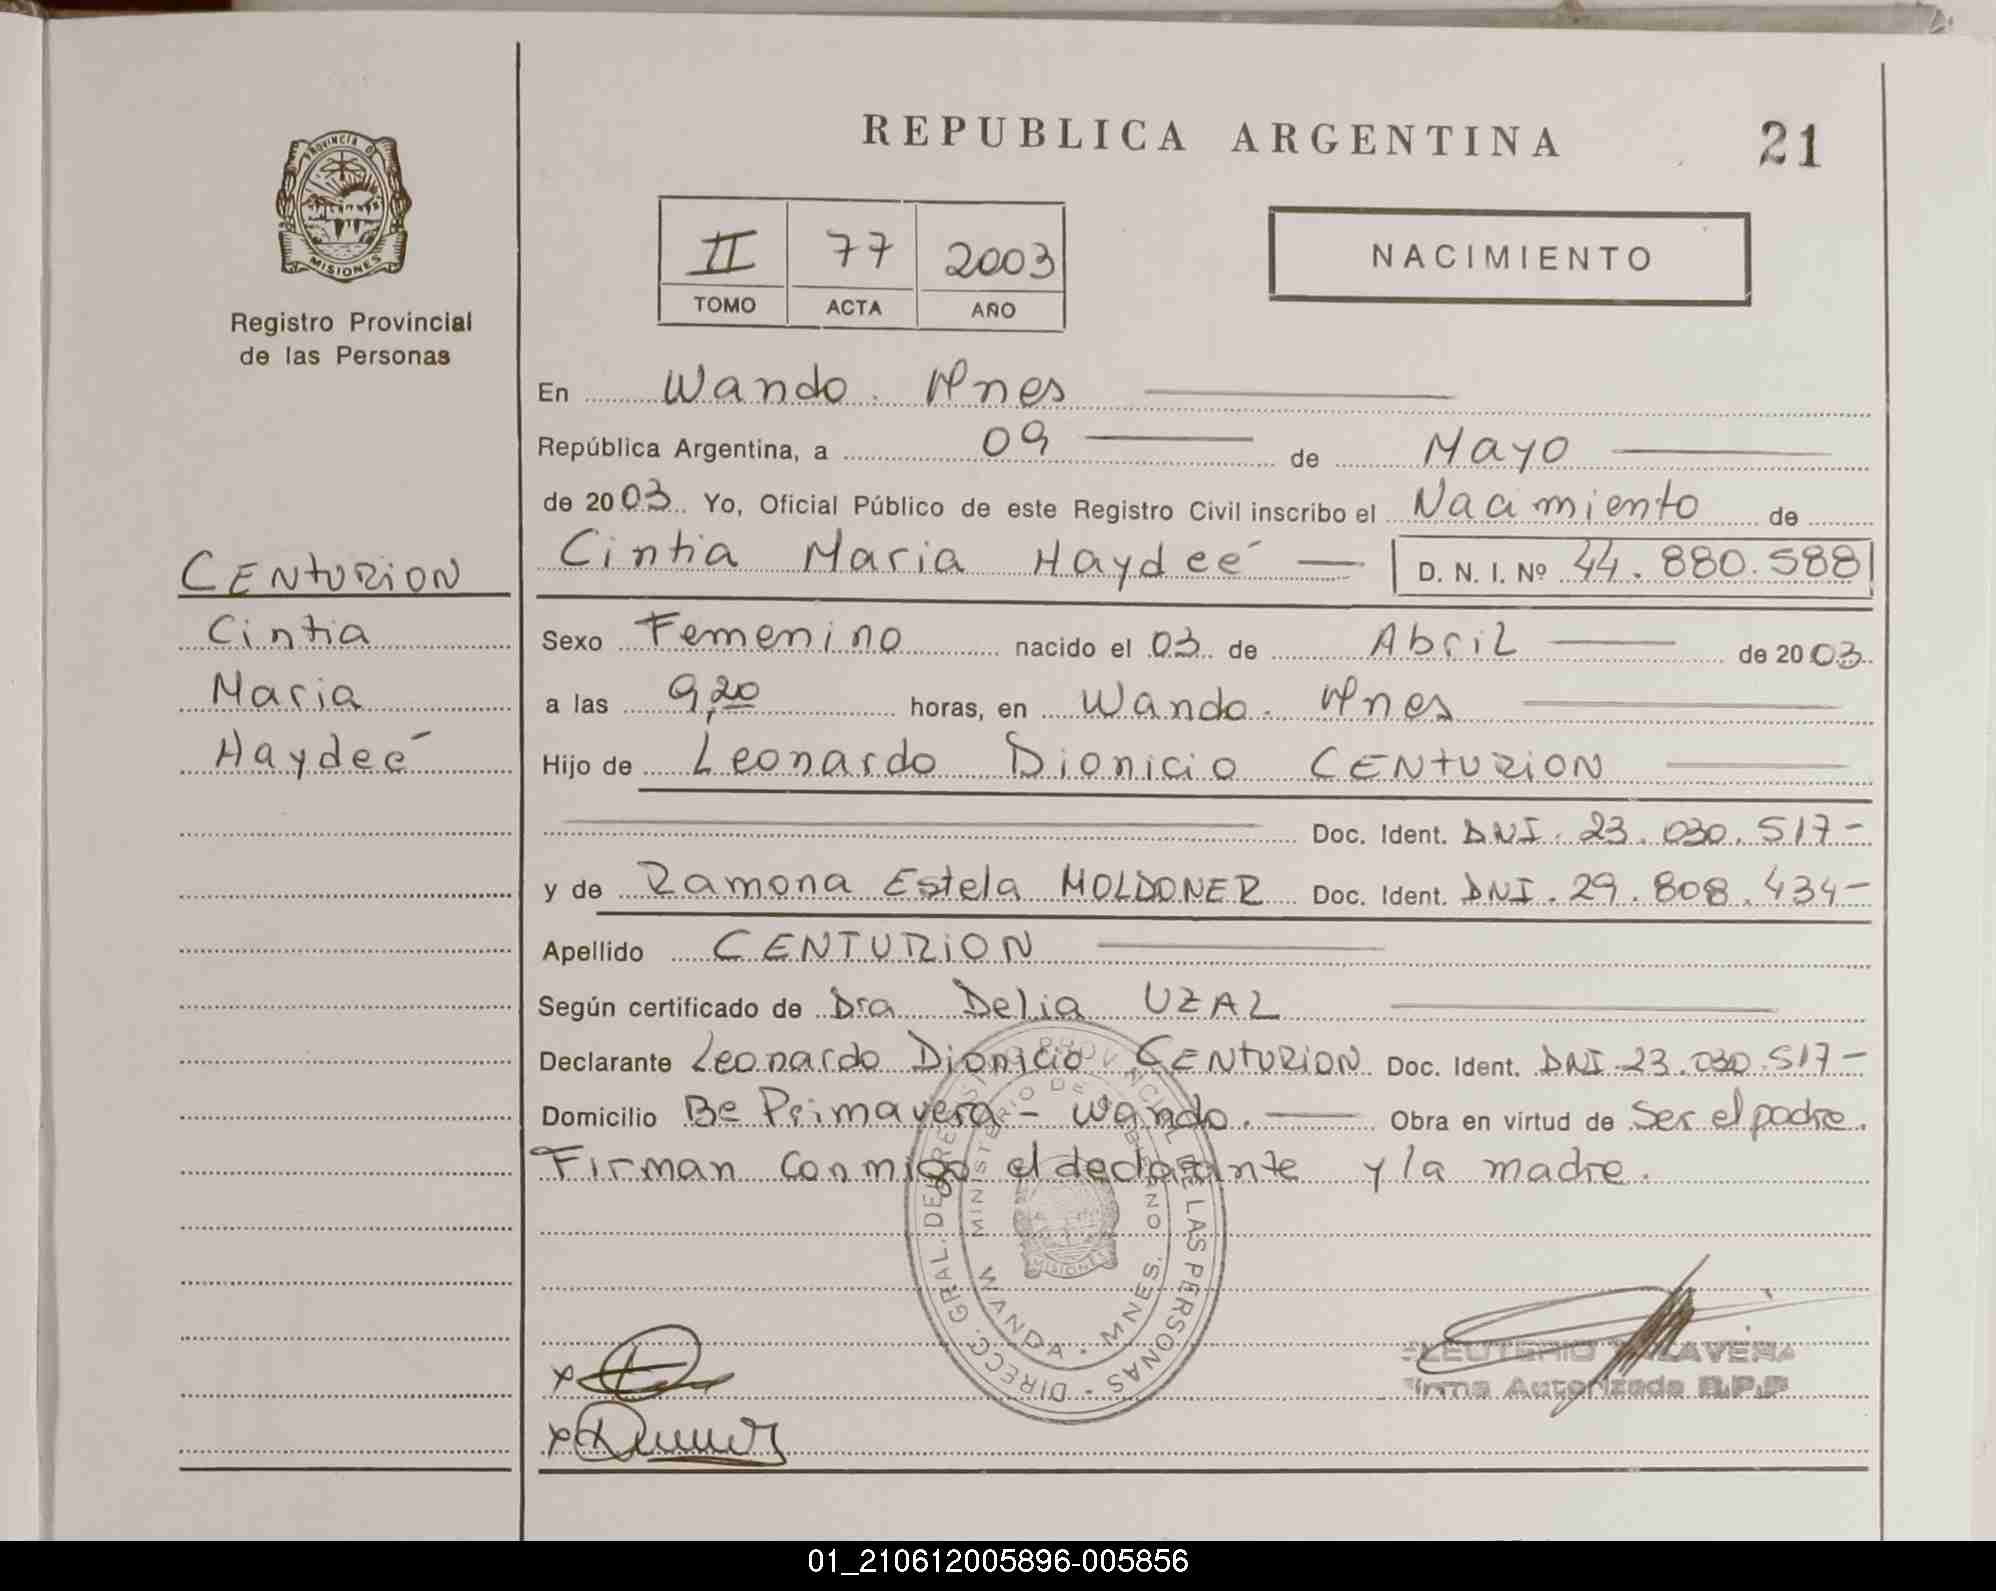 REPUBLICA ARGENTINA
21
PROVINCIA DE
MISIONES
Registro Provincial
de las Personas
II 77 2003
TOMO ACTA AÑO
NACIMIENTO
En Wanda. Mnes
República Argentina, a 09 de Mayo
de 2003 Yo, Oficial Público de este Registro Civil inscribo el Nacimiento de
Cintia Maria Haydeé D. N. I. Nº 44.880.588
CENTURION
Cintia
Maria
Haydeé
Sexo Femenino nacido el 03 de Abril de 2003
a las 9,20 horas, en Wanda. Mnes
Hijo de Leonardo Dionicio CENTURION
Doc. Ident. DNI. 23.030.517-
y de Ramona Estela MOLDONER Doc. Ident. DNI. 29.808.434-
Apellido CENTURION
Según certificado de Dra Delia UZAL
Declarante Leonardo Dionicio CENTURION Doc. Ident. DNI 23.030.517-
Domicilio Be Primavera - Wanda. Obra en virtud de Ser el padre.
Firman conmigo el declarante y la madre.
DIRECC. GRAL. DEL REGISTRO PROVINCIAL DE LAS PERSONAS
MINISTERIO DE GOBIERNO
MISIONES
WANDA - MNES.
ELEUTERIO TALAVERA
Firma Autorizada R.P.P
01_210612005896-005856